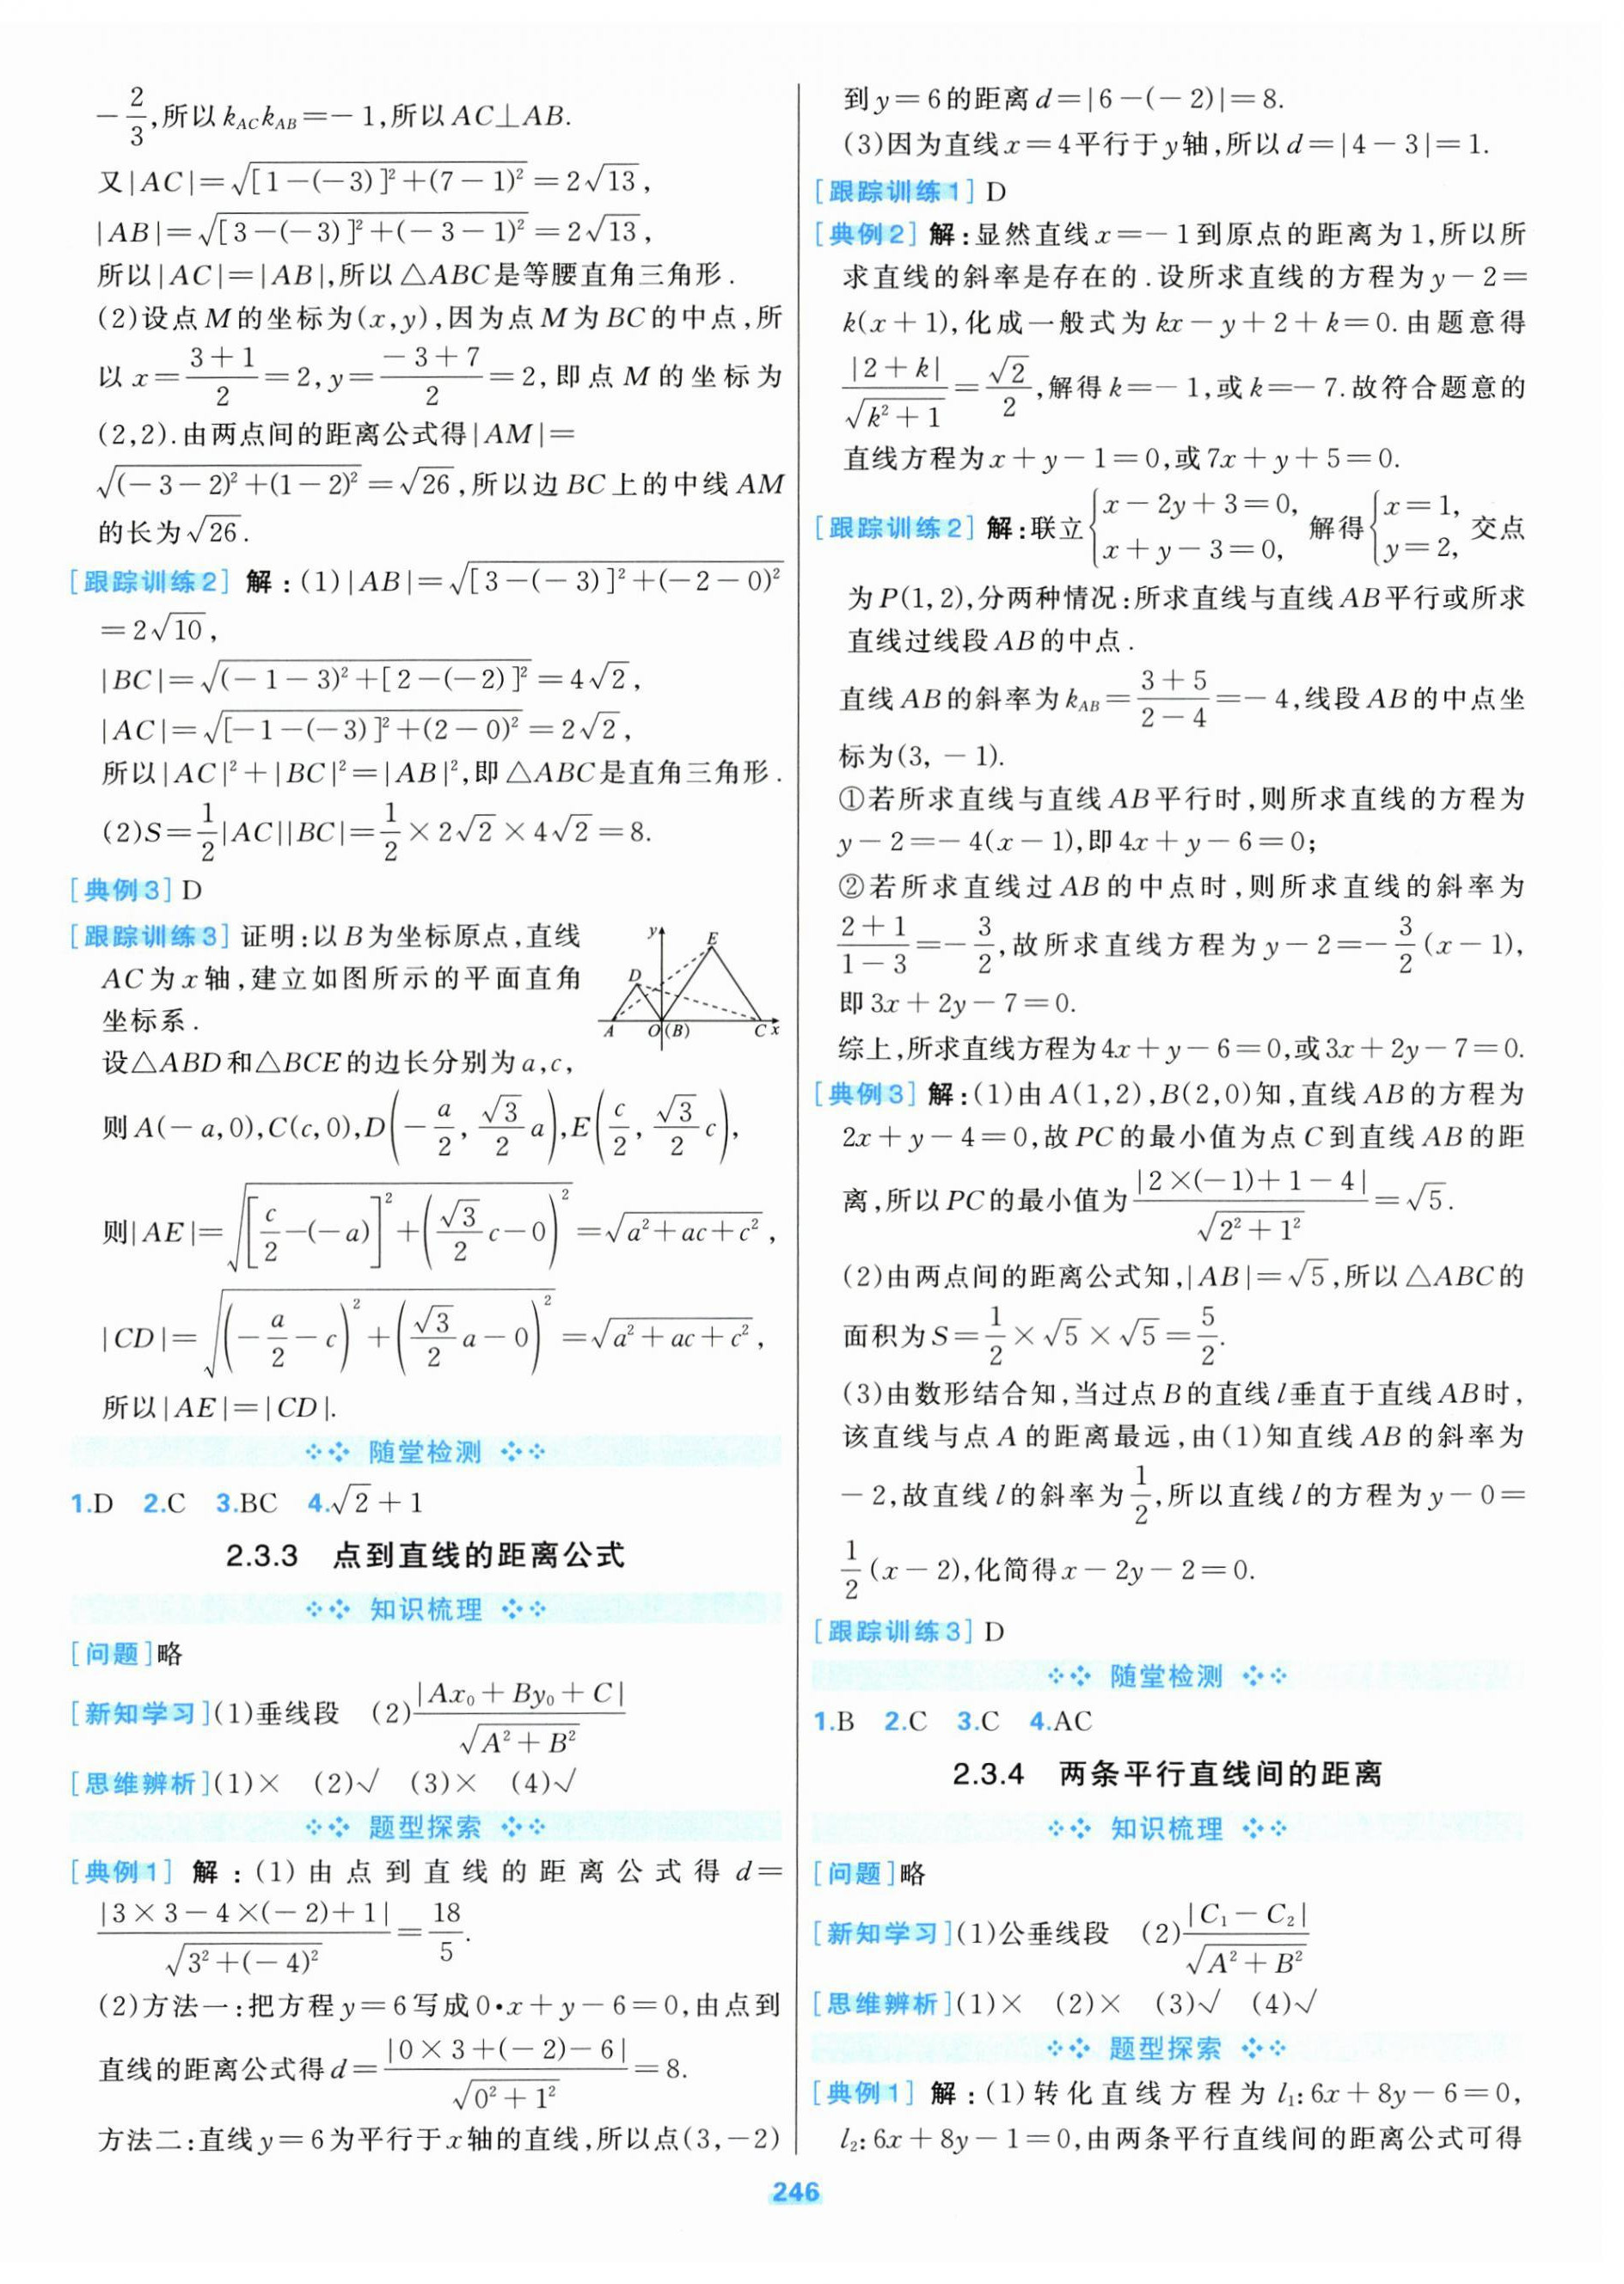 −2/3,所以k_AC k_AB=−1,所以AC⊥AB.
又|AC|=√([1−(−3)]²+(7−1)²)=2√13,
|AB|=√([3−(−3)]²+(−3−1)²)=2√13,
所以|AC|=|AB|,所以△ABC是等腰直角三角形.
(2)设点M的坐标为(x,y),因为点M为BC的中点,所
以x=(3+1)/2=2,y=(−3+7)/2=2,即点M的坐标为
(2,2).由两点间的距离公式得|AM|=
√((−3−2)²+(1−2)²)=√26,所以边BC上的中线AM
的长为√26.
[跟踪训练2] 解:(1)|AB|=√([3−(−3)]²+(−2−0)²)
=2√10,
|BC|=√((−1−3)²+[2−(−2)]²)=4√2,
|AC|=√([−1−(−3)]²+(2−0)²)=2√2,
所以|AC|²+|BC|²=|AB|²,即△ABC是直角三角形.
(2)S=1/2|AC||BC|=1/2×2√2×4√2=8.
[典例3] D
[跟踪训练3] 证明:以B为坐标原点,直线
AC为x轴,建立如图所示的平面直角
坐标系.
y E D A O(B) C x
设△ABD和△BCE的边长分别为a,c,
则A(−a,0),C(c,0),D(−a/2,√3/2 a),E(c/2,√3/2 c),
则|AE|=√([c/2−(−a)]²+(√3/2 c−0)²)=√(a²+ac+c²),
|CD|=√((−a/2−c)²+(√3/2 a−0)²)=√(a²+ac+c²),
所以|AE|=|CD|.
随堂检测
1.D 2.C 3.BC 4.√2+1
2.3.3 点到直线的距离公式
知识梳理
[问题]略
[新知学习](1)垂线段 (2)|Ax₀+By₀+C|/√(A²+B²)
[思维辨析](1)× (2)√ (3)× (4)√
题型探索
[典例1] 解:(1)由点到直线的距离公式得d=
|3×3−4×(−2)+1|/√(3²+(−4)²)=18/5.
(2)方法一:把方程y=6写成0•x+y−6=0,由点到
直线的距离公式得d=|0×3+(−2)−6|/√(0²+1²)=8.
方法二:直线y=6为平行于x轴的直线,所以点(3,−2)
到y=6的距离d=|6−(−2)|=8.
(3)因为直线x=4平行于y轴,所以d=|4−3|=1.
[跟踪训练1] D
[典例2] 解:显然直线x=−1到原点的距离为1,所以所
求直线的斜率是存在的.设所求直线的方程为y−2=
k(x+1),化成一般式为kx−y+2+k=0.由题意得
|2+k|/√(k²+1)=√2/2,解得k=−1,或k=−7.故符合题意的
直线方程为x+y−1=0,或7x+y+5=0.
[跟踪训练2] 解:联立{x−2y+3=0, x+y−3=0, 解得{x=1, y=2, 交点
为P(1,2),分两种情况:所求直线与直线AB平行或所求
直线过线段AB的中点.
直线AB的斜率为k_AB=(3+5)/(2−4)=−4,线段AB的中点坐
标为(3,−1).
①若所求直线与直线AB平行时,则所求直线的方程为
y−2=−4(x−1),即4x+y−6=0;
②若所求直线过AB的中点时,则所求直线的斜率为
(2+1)/(1−3)=−3/2,故所求直线方程为y−2=−3/2(x−1),
即3x+2y−7=0.
综上,所求直线方程为4x+y−6=0,或3x+2y−7=0.
[典例3] 解:(1)由A(1,2),B(2,0)知,直线AB的方程为
2x+y−4=0,故PC的最小值为点C到直线AB的距
离,所以PC的最小值为|2×(−1)+1−4|/√(2²+1²)=√5.
(2)由两点间的距离公式知,|AB|=√5,所以△ABC的
面积为S=1/2×√5×√5=5/2.
(3)由数形结合知,当过点B的直线l垂直于直线AB时,
该直线与点A的距离最远,由(1)知直线AB的斜率为
−2,故直线l的斜率为1/2,所以直线l的方程为y−0=
1/2(x−2),化简得x−2y−2=0.
[跟踪训练3] D
随堂检测
1.B 2.C 3.C 4.AC
2.3.4 两条平行直线间的距离
知识梳理
[问题]略
[新知学习](1)公垂线段 (2)|C₁−C₂|/√(A²+B²)
[思维辨析](1)× (2)× (3)√ (4)√
题型探索
[典例1] 解:(1)转化直线方程为l₁:6x+8y−6=0,
l₂:6x+8y−1=0,由两条平行直线间的距离公式可得
246